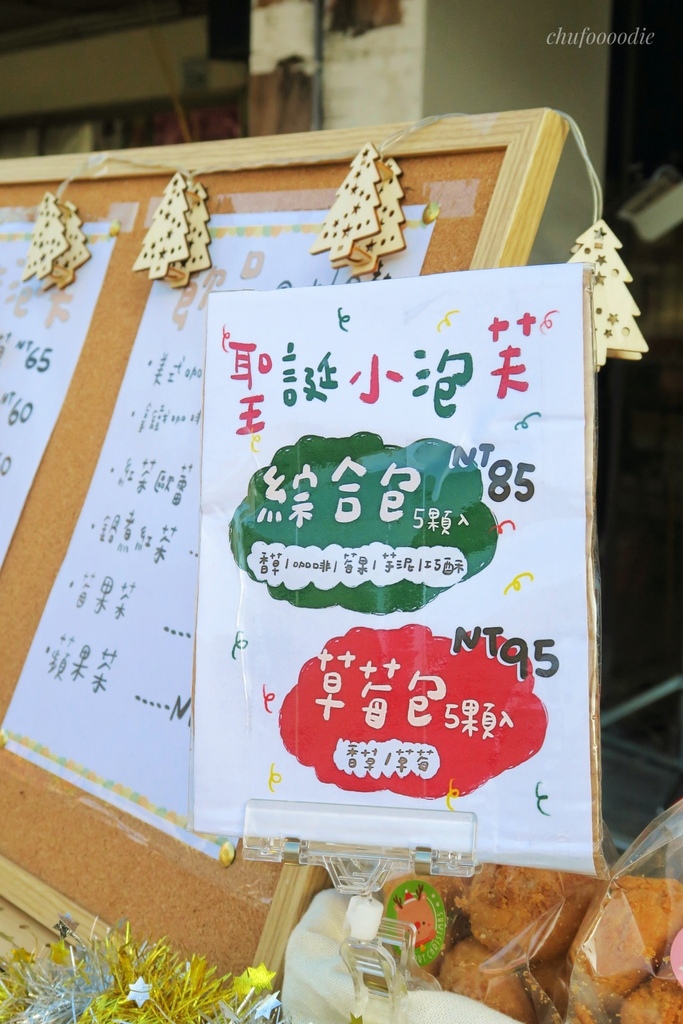 chufoooodie
NT65
NT60
飲
美式咖
紅茶歐蕾
鍋煮紅茶
莓果茶
蘋果茶
聖誕小泡芙
綜合包 5顆入 NT85
香草/咖啡/莓果/芋泥/巧酥
草莓包 5顆入 NT95
香草/草莓